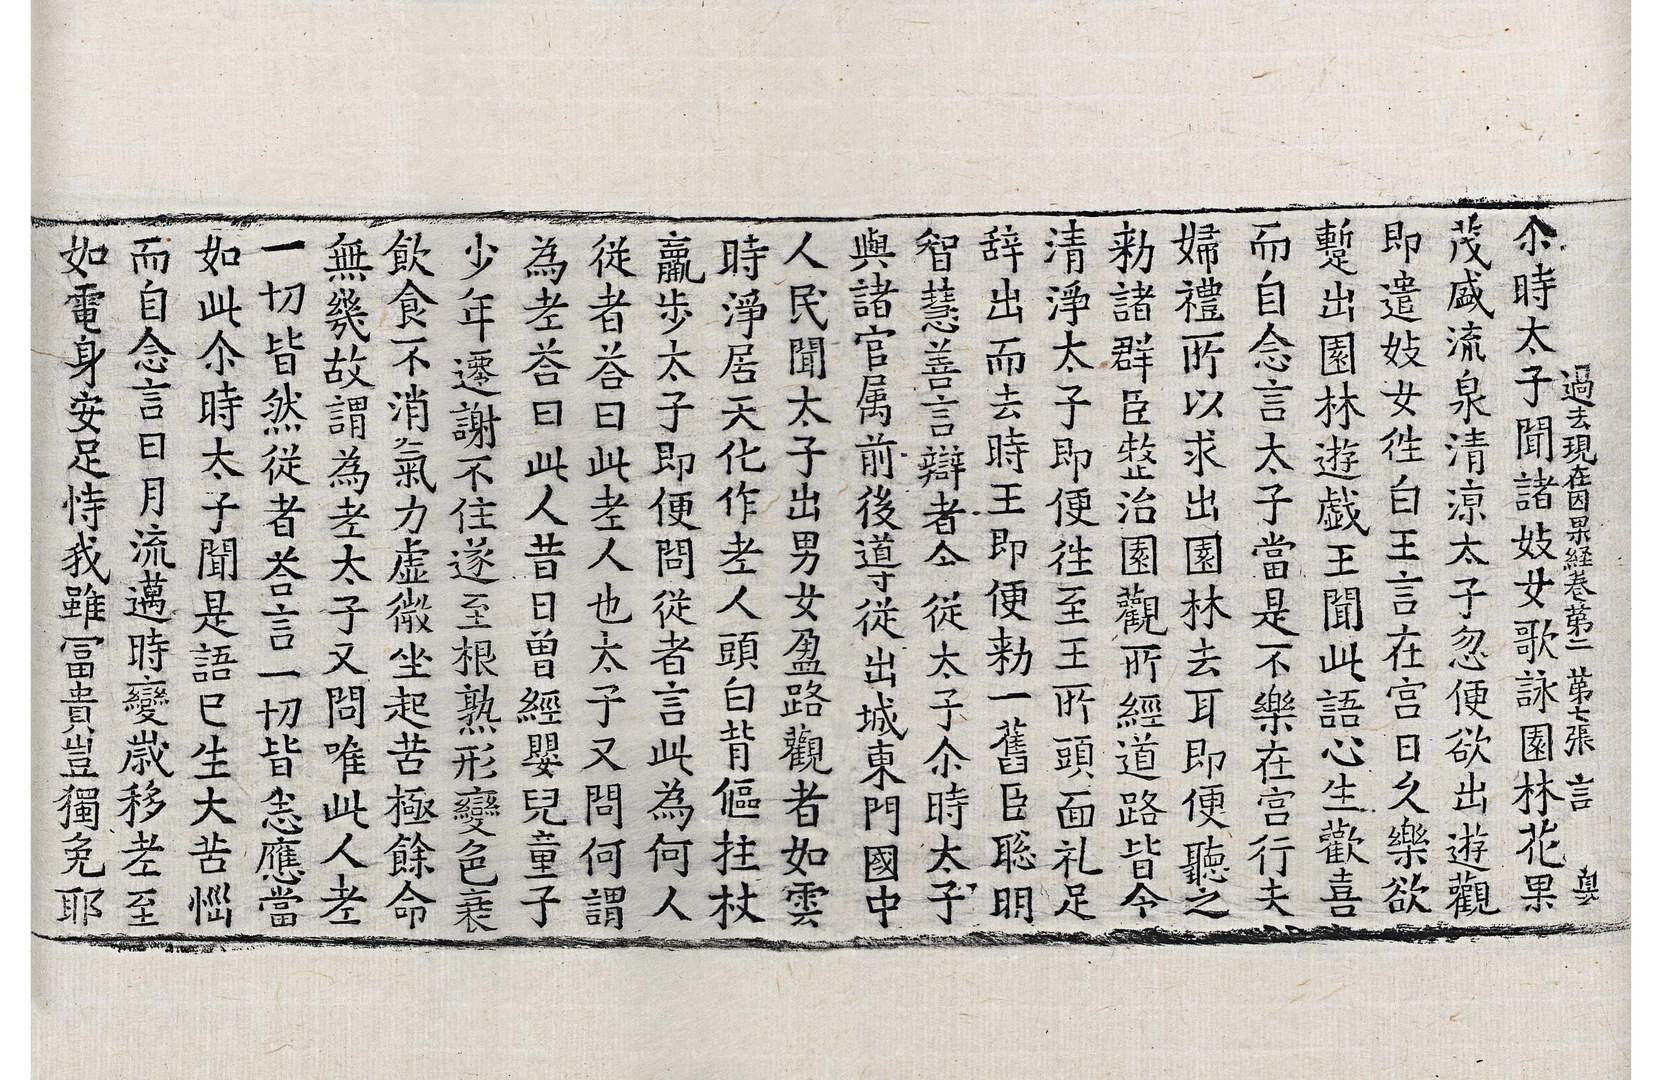 過去現在因果経卷第二 第七張 言
尒時太子聞諸妓女歌詠園林花果
茂盛流泉清涼太子忽便欲出遊觀
即遣妓女徃白王言在宫日久樂欲
蹔出園林遊戯王聞此語心生歡喜
而自念言太子當是不樂在宫行夫
婦禮所以求出園林去耳即便聽之
勑諸群臣整治園觀所經道路皆令
清淨太子即便徃至王所頭面礼足
辞出而去時王即便勑一舊臣聡明
智慧善言辯者令從太子尒時太子
與諸官属前後導從出城東門國中
人民聞太子出男女盈路觀者如雲
時淨居天化作老人頭白背傴拄杖
羸步太子即便問從者言此為何人
從者荅曰此老人也太子又問何謂
為老荅曰此人昔日曾經嬰兒童子
少年遷謝不住遂至根熟形變色衰
飲食不消氣力虚微坐起苦極餘命
無幾故謂為老太子又問唯此人老
一切皆然從者荅言一切皆悉應當
如此尒時太子聞是語已生大苦惱
而自念言日月流邁時變歲移老至
如電身安足恃我雖冨貴豈獨免耶